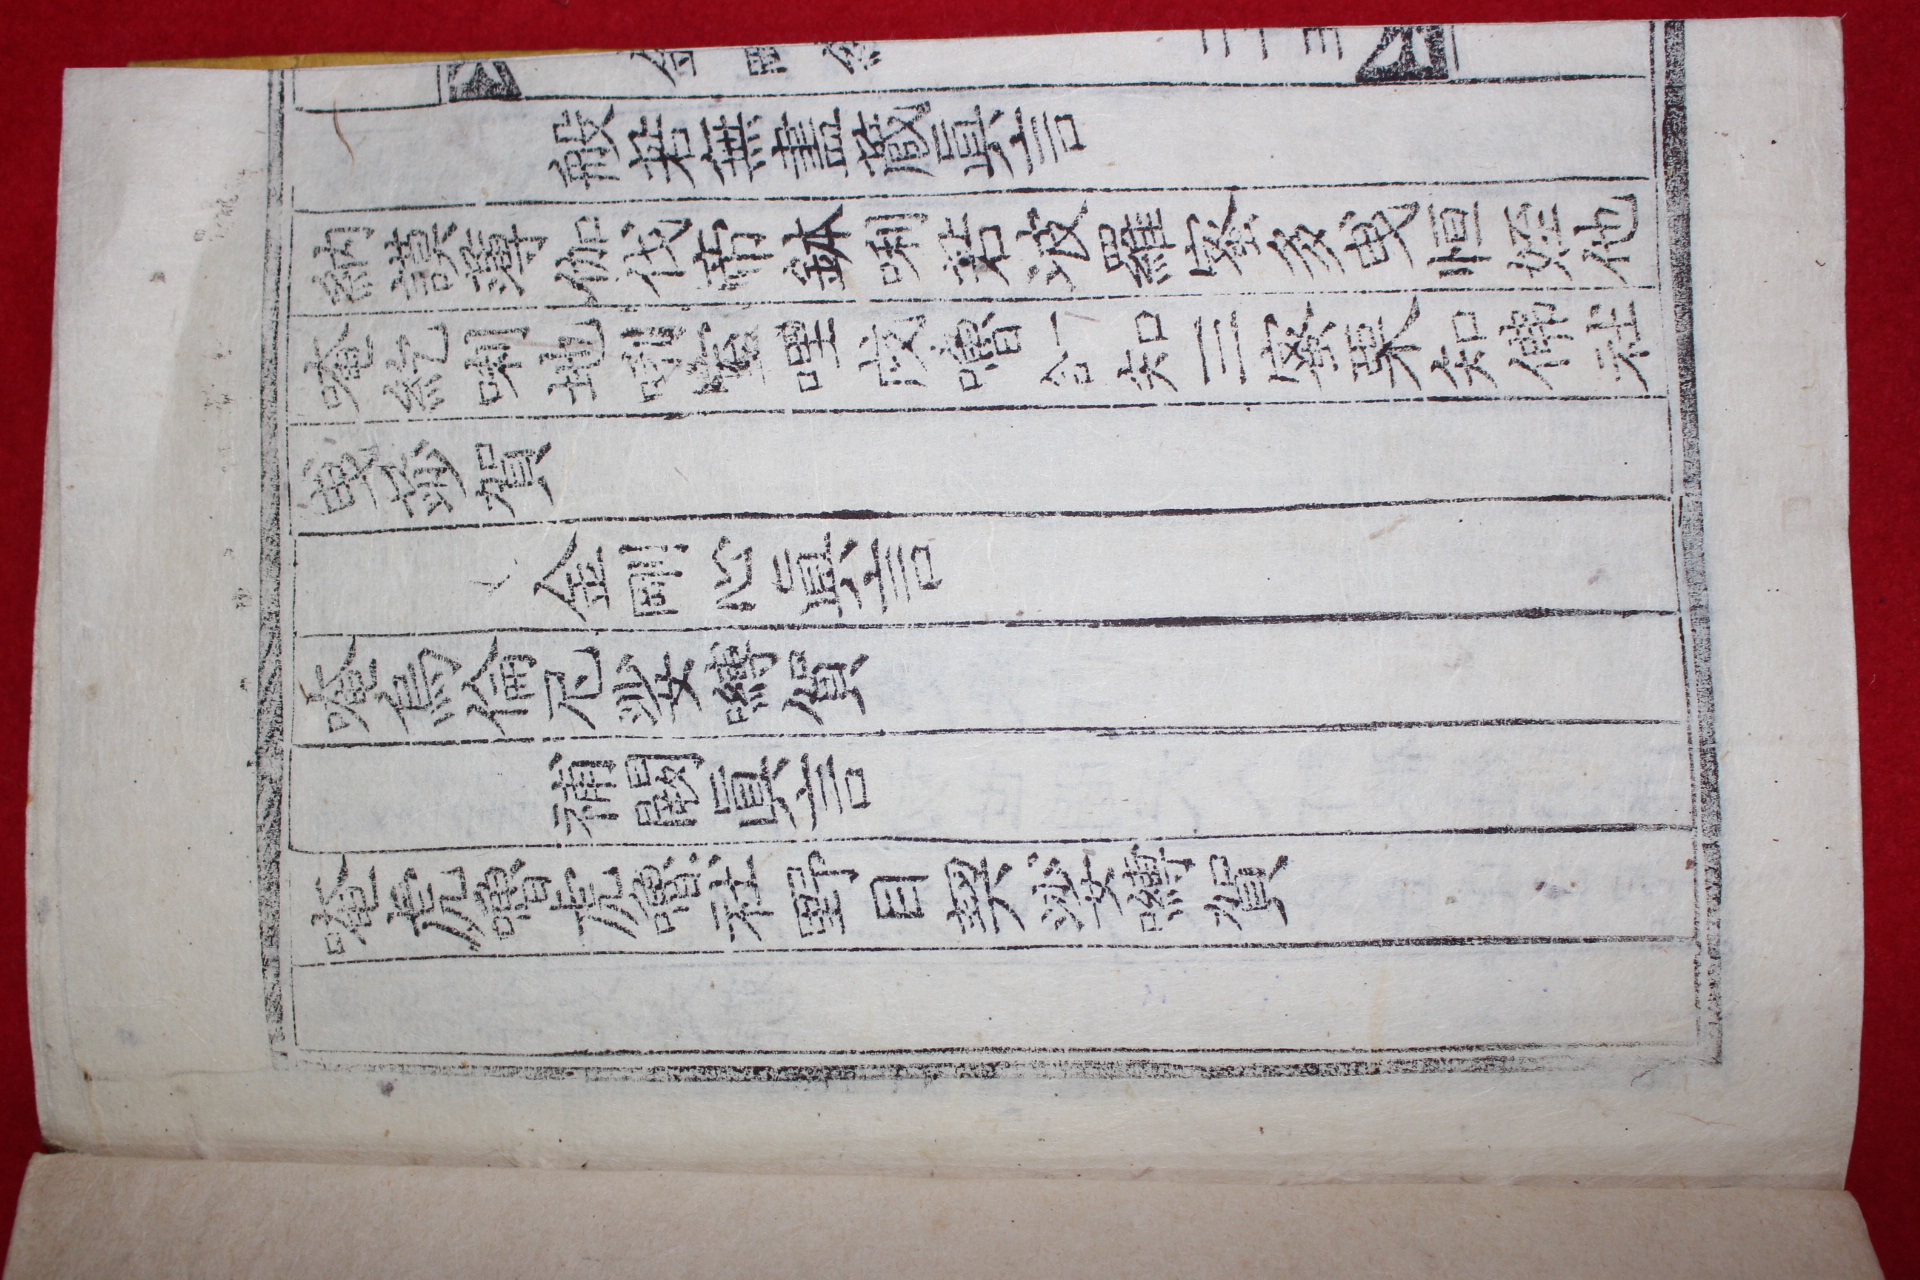 般若無盡藏眞言
納謨薄伽伐帝鉢唎若波羅蜜多曳怛姪他
唵紇唎地唎室哩戍嚕知三蜜栗知佛社
曳莎賀
金剛心眞言
唵烏倫尼娑嚩賀
補闕眞言
唵虎嚕虎嚕社野目契娑嚩賀
二十三